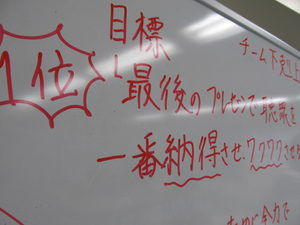 1位
目標
チーム下剋上
最後のプレゼンで聴衆を
一番納得させ、ワクワクさせ
ために全力で